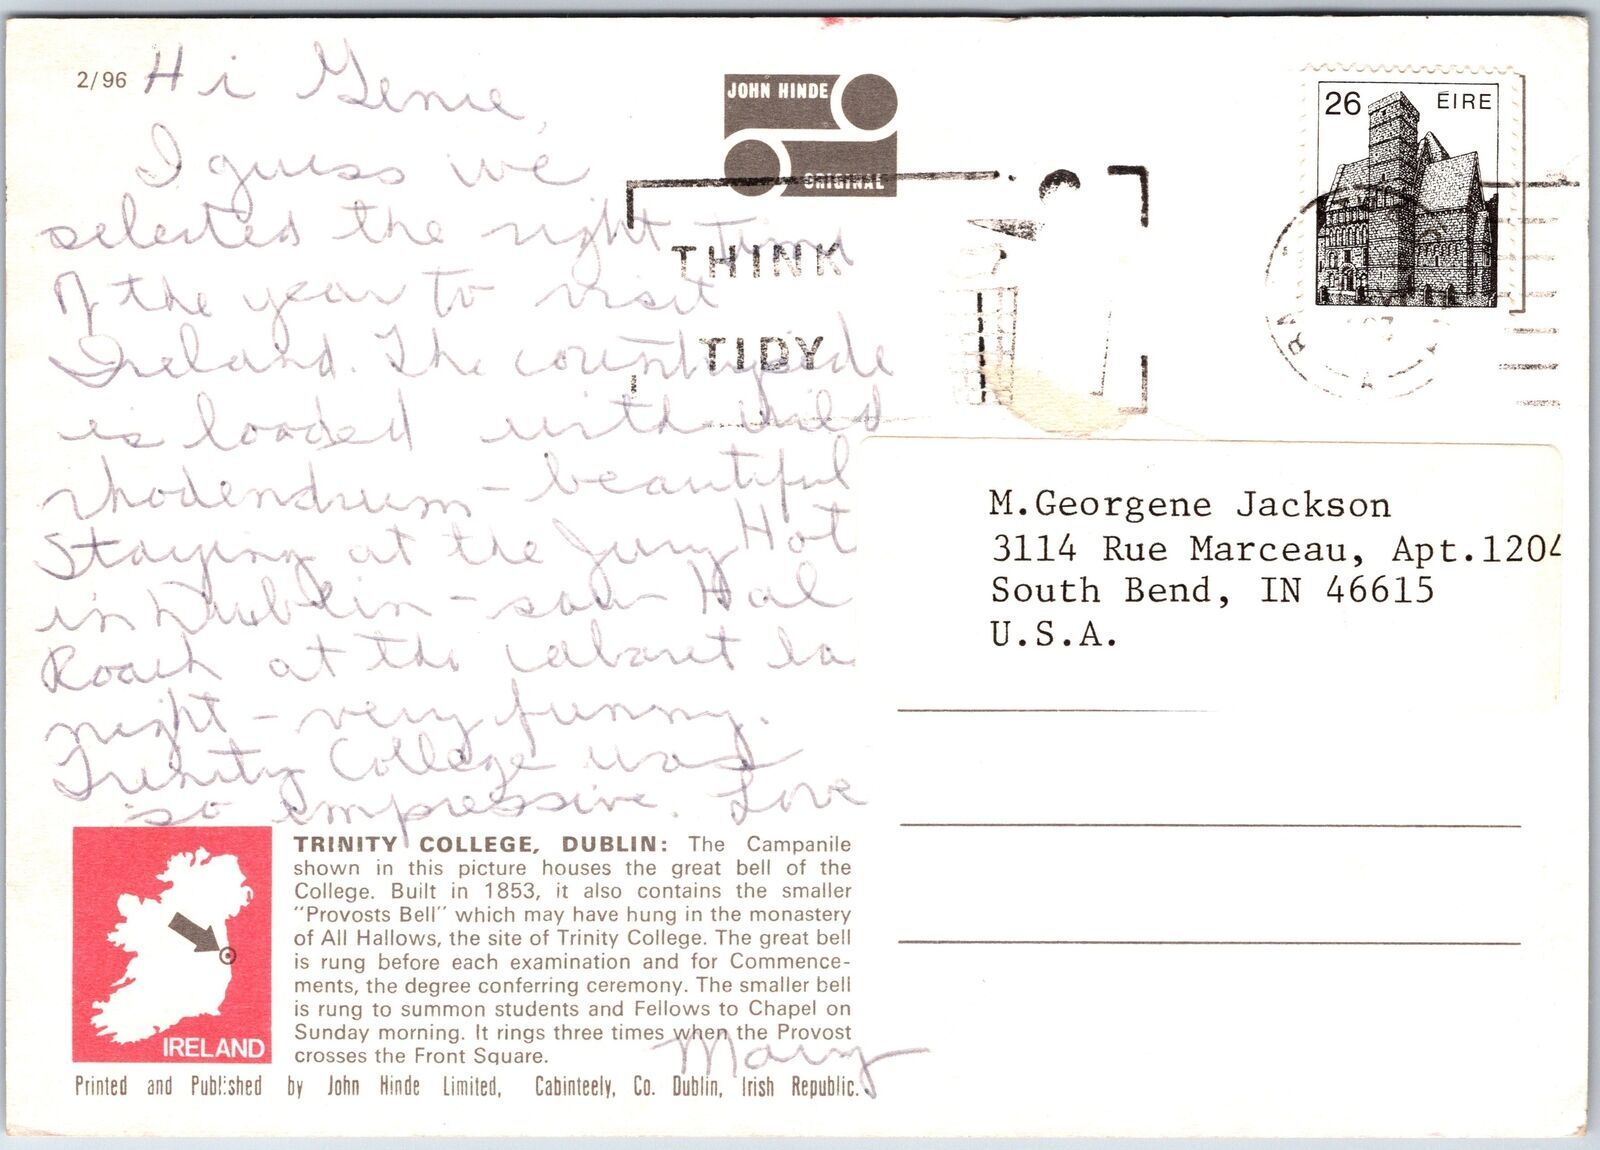 2/96
Hi Genie,
I guess we
selected the right time
of the year to visit
Ireland. The countryside
is loaded with wild
rhodendrum - beautiful
Staying at the Jury Hot
in Dublin - saw Hal
Roach at the cabaret la
night - very funny.
Trinity College was
so impressive. Love
Mary
JOHN HINDE
ORIGINAL
THINK
TIDY
26 ÉIRE
M.Georgene Jackson
3114 Rue Marceau, Apt.1204
South Bend, IN 46615
U.S.A.
IRELAND
TRINITY COLLEGE, DUBLIN: The Campanile
shown in this picture houses the great bell of the
College. Built in 1853, it also contains the smaller
"Provosts Bell" which may have hung in the monastery
of All Hallows, the site of Trinity College. The great bell
is rung before each examination and for Commence-
ments, the degree conferring ceremony. The smaller bell
is rung to summon students and Fellows to Chapel on
Sunday morning. It rings three times when the Provost
crosses the Front Square.
Printed and Published by John Hinde Limited, Cabinteely, Co. Dublin, Irish Republic.